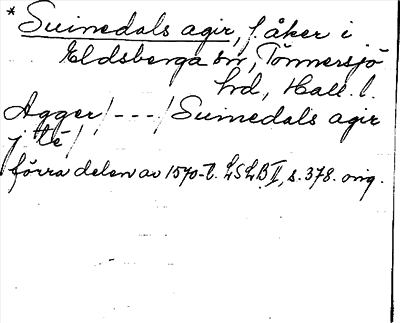 * Suinedals agir, f. åker i
Eldsberga sn, Tönnersjö
hd, Hall. l.
Agger /---/ Suinedals agir
j té /
förra delen av 1570-t. LSLB II, s. 378. orig.